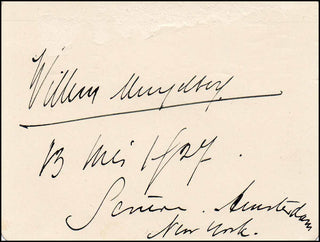 Willem Mengelberg
13 Mei 1927.
Amsterdam
New York.